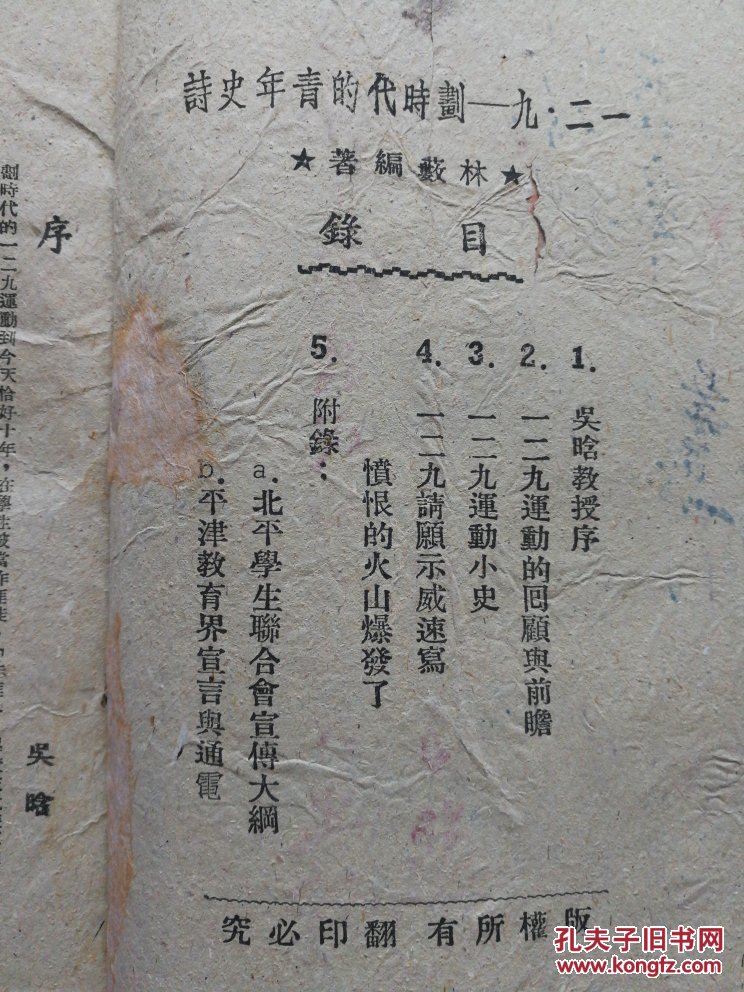 一二·九—劃時代的青年史詩
★林藪編著★
目錄
1. 吳晗教授序
2. 一二九運動的囘顧與前瞻
3. 一二九運動小史
4. 一二九請願示威速寫
憤恨的火山爆發了
5. 附錄：
a. 北平學生聯合會宣傳大綱
b. 平津教育界宣言與通電
版權所有 翻印必究
序
吳晗
劃時代的一二九運動到今天恰好十年，在學生
孔夫子旧书网
www.kongfz.com